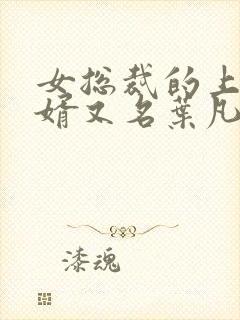 女总裁的上
婿又名葉凡
漆魂